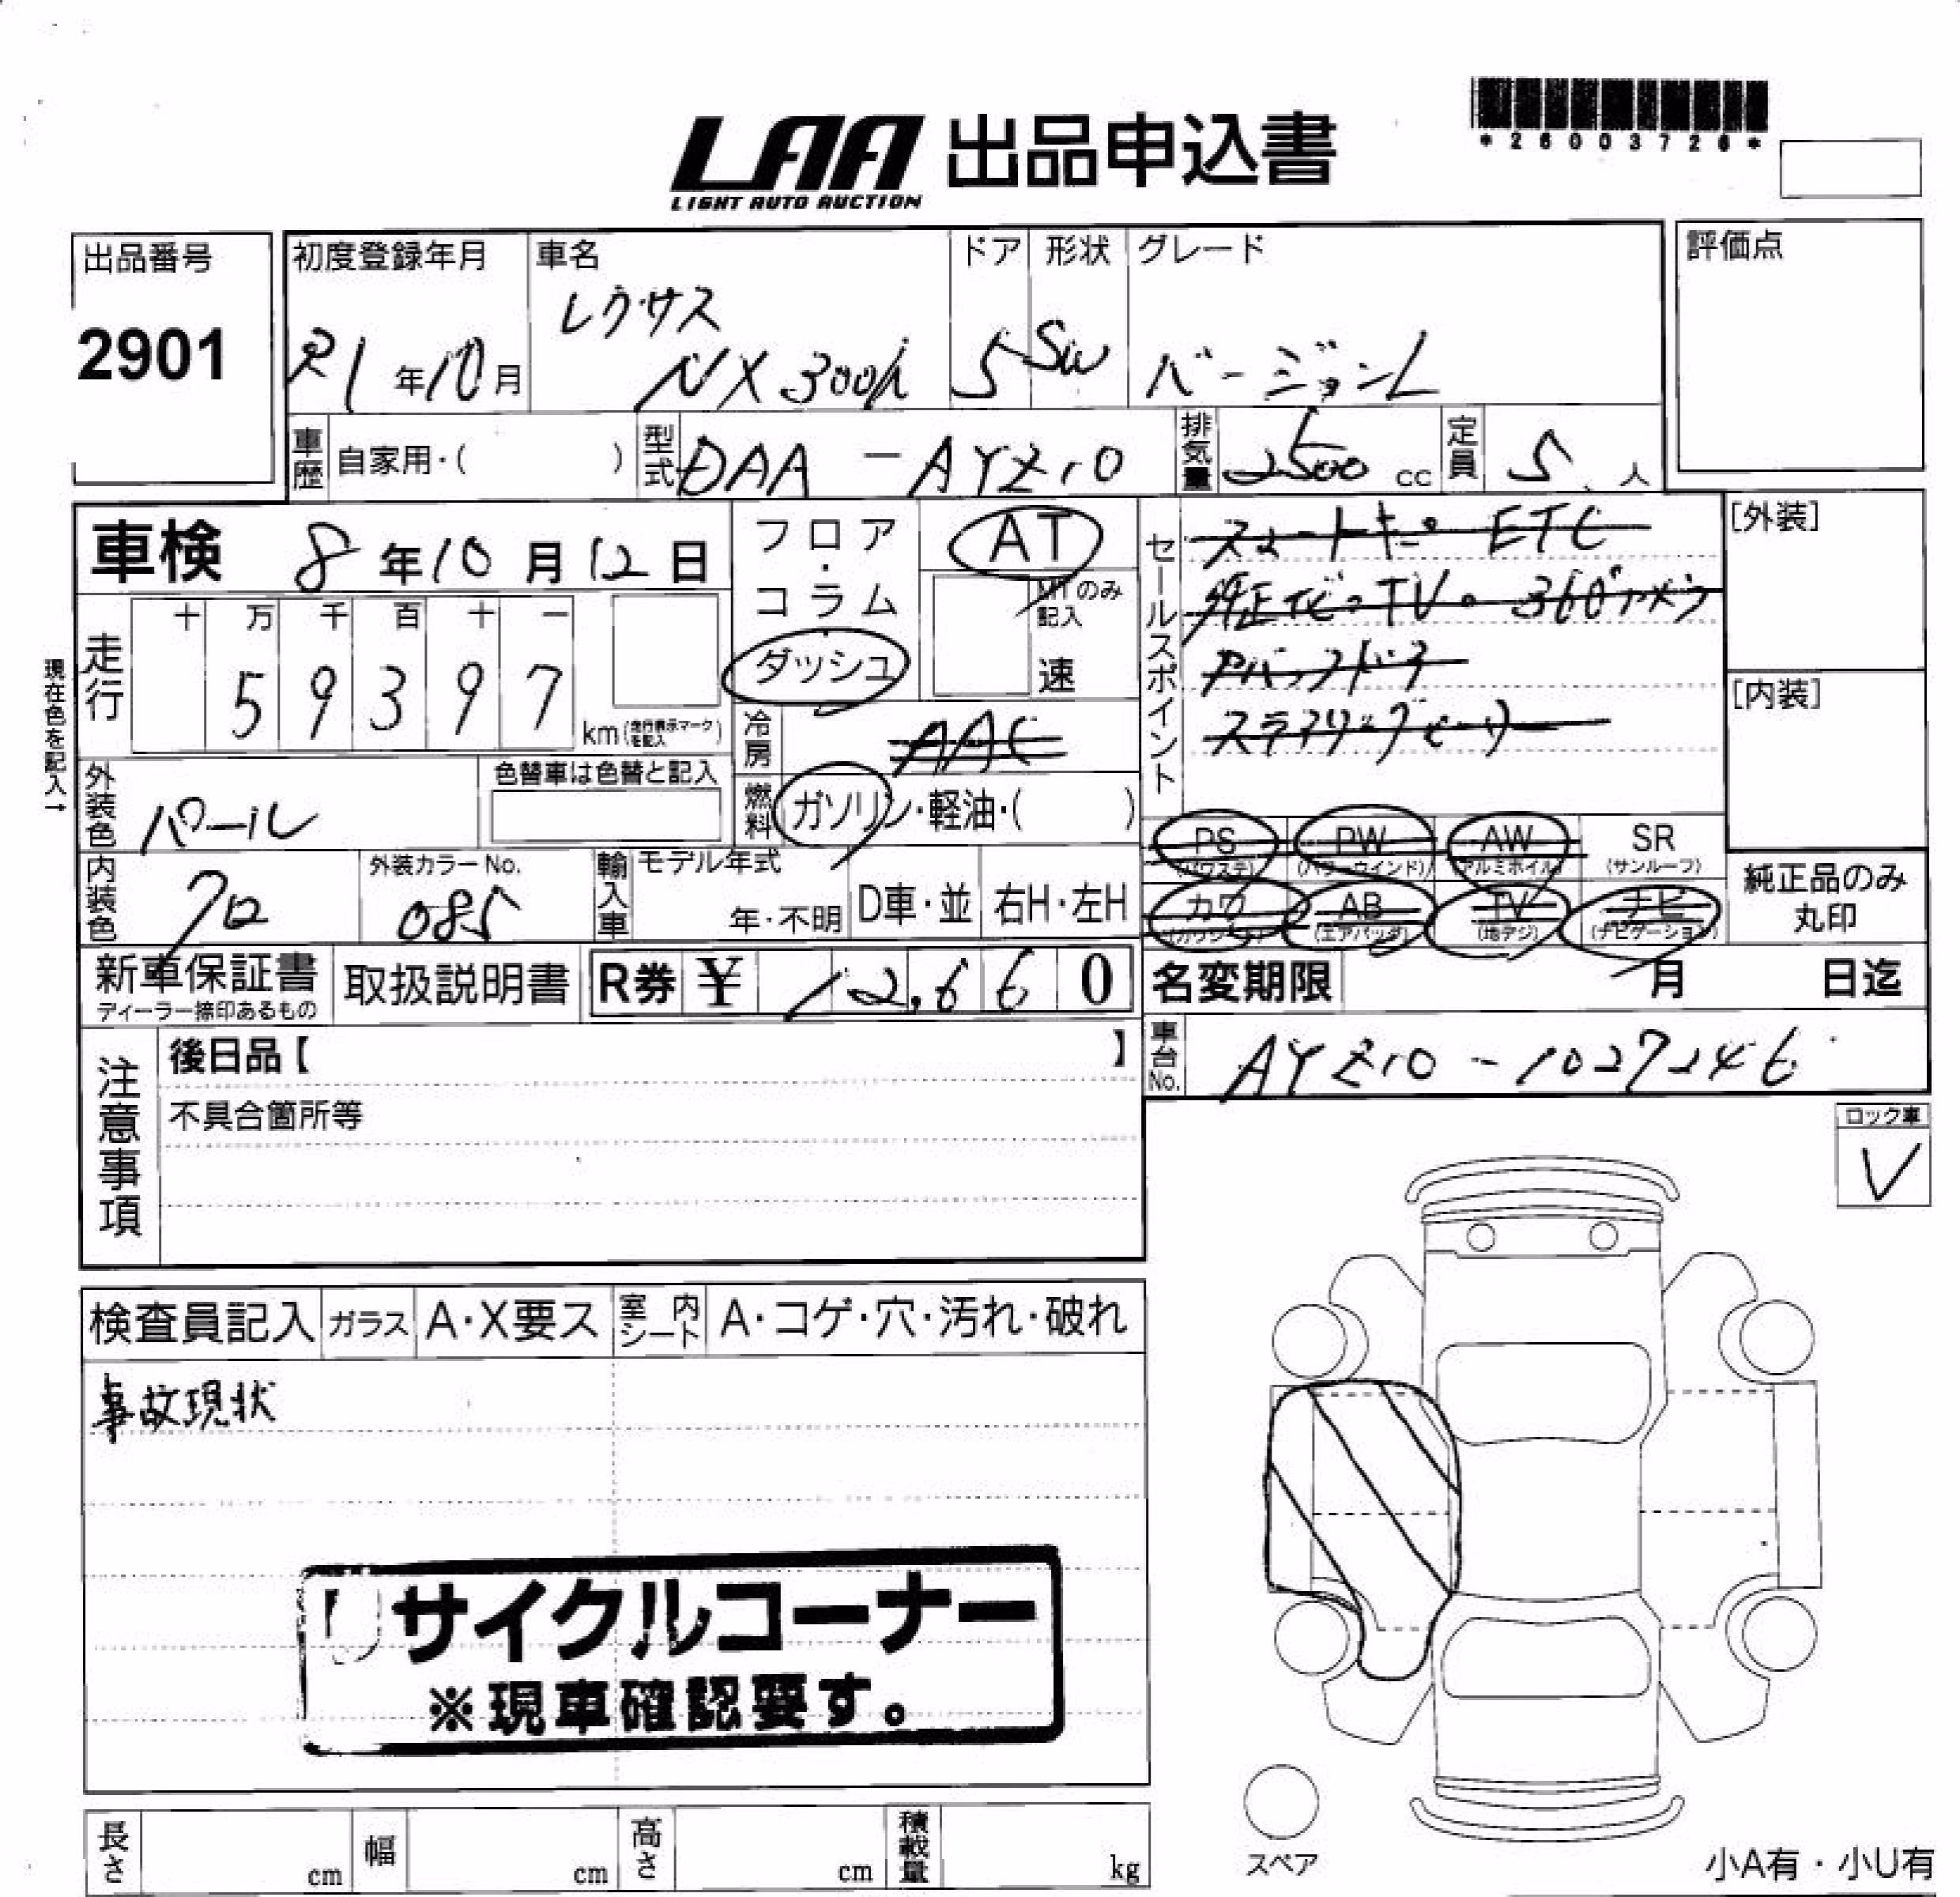 LAA 出品申込書
LIGHT AUTO AUCTION
*26003726*
出品番号
2901
初度登録年月
R1年10月
車名
レクサス
NX300h
ドア
5
形状
SW
グレード
バージョンL
評価点
車歴 自家用・( )
型式 DAA-AYZ10
排気量 2500 cc
定員 5 人
車検 8年10月12日
フロア・コラム
ダッシュ
AT
MTのみ記入
速
セールスポイント
スマートキー ETC
純正ナビ・TV・360°カメラ
Pバックドア
ステアリングヒーター
[外装]
[内装]
現在色を記入→
走行
十 万 千 百 十 一
5 9 3 9 7
km(走行表示マークを記入)
冷房 AAC
燃料 ガソリン・軽油・( )
外装色 パール
色替車は色替と記入
内装色 クロ
外装カラーNo.
085
輸入車
モデル年式
年・不明
D車・並
右H・左H
PS (パワステ)
PW (パワーウインド)
AW (アルミホイル)
SR (サンルーフ)
カワ (カワシート)
AB (エアバッグ)
TV (地デジ)
ナビ (ナビゲーション)
純正品のみ
丸印
新車保証書
ディーラー捺印あるもの
取扱説明書
R券 ¥ 12,660
名変期限 月 日迄
注意事項
後日品【 】
不具合箇所等
車台No. AYZ10-1027246
ロック車
V
検査員記入
ガラス A・X要ス
室内シート A・コゲ・穴・汚れ・破れ
事故現状
リサイクルコーナー
※現車確認要す。
長さ cm
幅 cm
高さ cm
積載量 kg
スペア
小A有・小U有